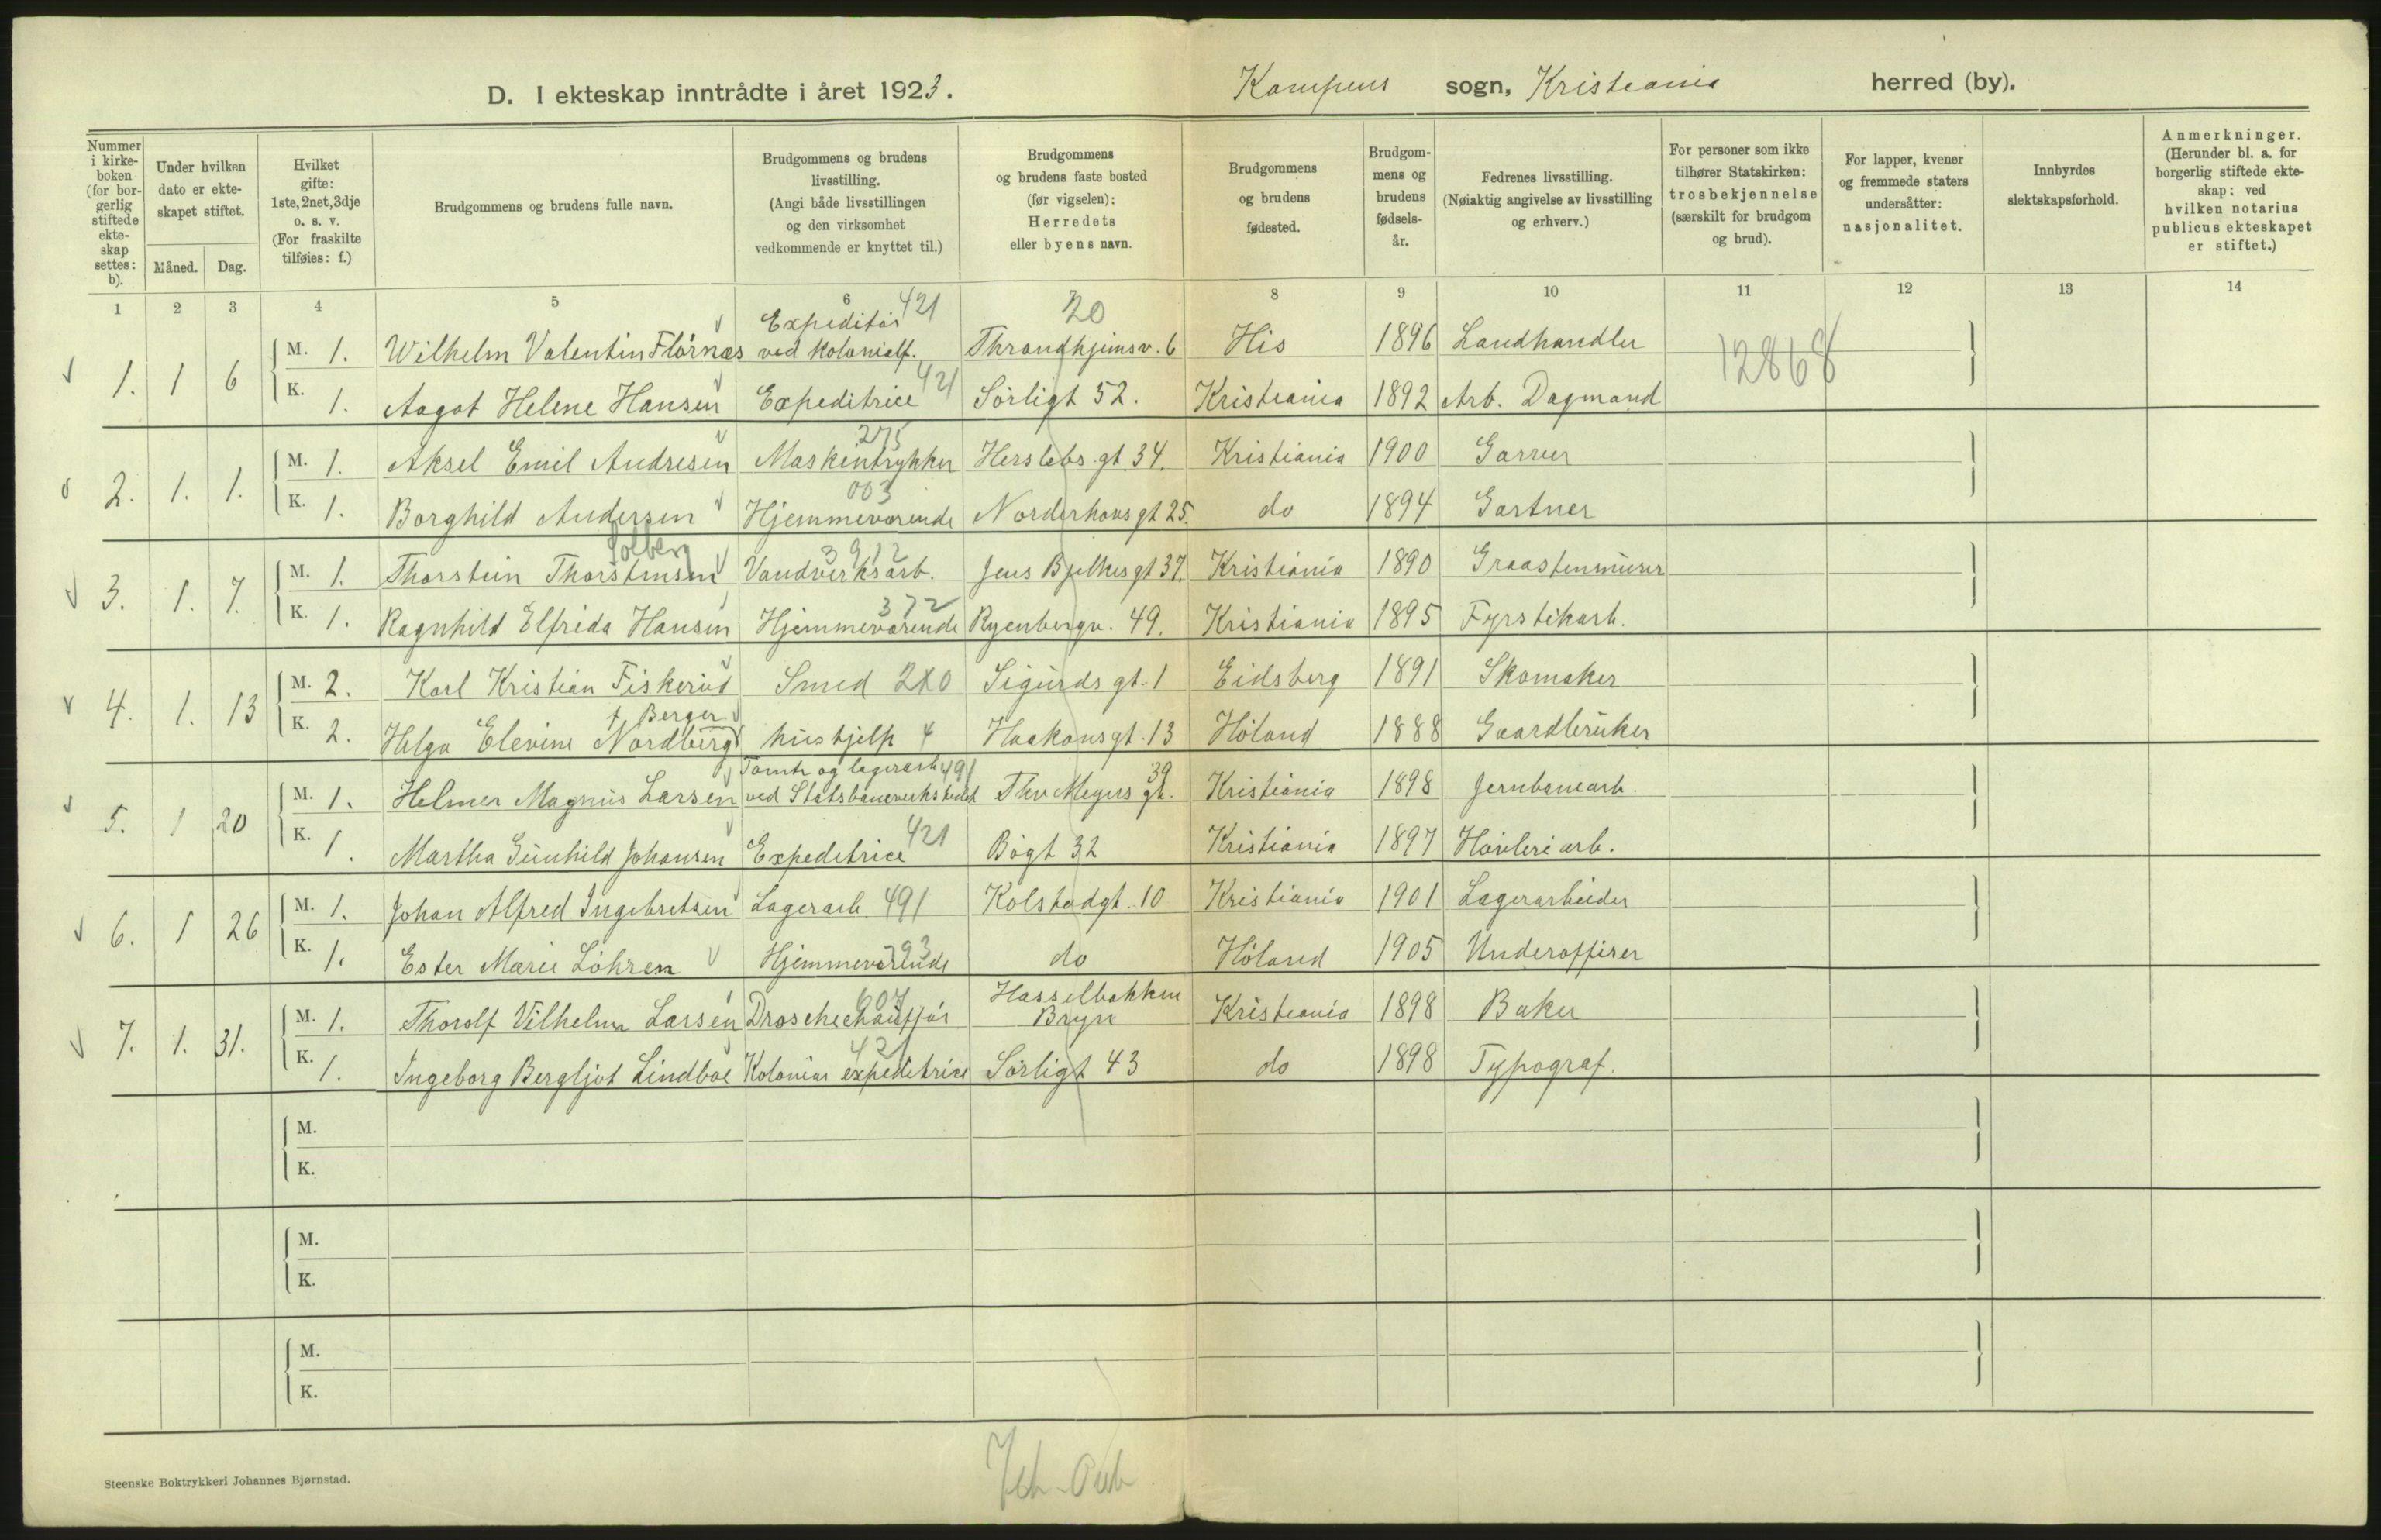 D. I ekteskap inntrådte i året 1923. Kampens sogn, Kristiania herred (by).
Nummer i kirkeboken (for borgerlig stiftede ekteskap settes: b).
Under hvilken dato er ekteskapet stiftet.
Måned. Dag.
Hvilket gifte: 1ste, 2net, 3dje o. s. v. (For fraskilte tilføies: f.)
Brudgommens og brudens fulle navn.
Brudgommens og brudens livsstilling. (Angi både livsstillingen og den virksomhet vedkommende er knyttet til.)
Brudgommens og brudens faste bosted (før vigselen): Herredets eller byens navn.
Brudgommens og brudens fødested.
Brudgommens og brudens fødselsår.
Fedrenes livsstilling. (Nøiaktig angivelse av livsstilling og erhverv.)
For personer som ikke tilhører Statskirken: trosbekjennelse (særskilt for brudgom og brud).
For lapper, kvener og fremmede staters undersåtter: nasjonalitet.
Innbyrdes slektskapsforhold.
Anmerkninger. (Herunder bl. a. for borgerlig stiftede ekteskap: ved hvilken notarius publicus ekteskapet er stiftet.)
1 2 3 4 5 6 8 9 10 11 12 13 14
Expeditør 421 20
1. 1 6 M. 1. Wilhelm Valentin Flörnæs ved Kolonialf. Throndhjemsv. 6 His 1896 Landhandler 12868
K. 1. Aagot Helene Hansen Expeditrice 421 Sörligt 52. Kristiania 1892 Arb. Dagmand
275
2. 1. 1. M. 1. Aksel Emil Andresen Maskintrykker Herslebs gt. 34. Kristiania 1900 Garver
003
K. 1. Borghild Andersen Hjemmeværende Norderhovs gt 25. do 1894 Gartner
Solberg 3912
3. 1. 7. M. 1. Thorstein Thorstensen Vandverksarb. Jens Bjelkes gt 37. Kristiania 1890 Graastenmurer
372
K. 1. Ragnhild Elfrida Hansen Hjemmeværende Ryenbergv. 49. Kristiania 1895 Fyrstikarb.
4. 1. 13 M. 2. Karl Kristian Fiskerud Smed 280 Sigurds gt. 1 Eidsberg 1891 Skomaker
f. Berger
K. 2. Helga Elevine Nordberg hushjelp 4 Haakonsgt. 13 Höland 1888 Gaardbruker
Tomte og lagerarb 491 39
5. 1 20 M. 1. Helmer Magnus Larsen ved Statsbaneverkstedet Thv Meyers gt. Kristiania 1898 Jernbanearb.
K. 1. Martha Gunhild Johansen Expeditrice 421 Bögt 32 Kristiania 1897 Høvleriarb.
6. 1 26 M. 1. Johan Alfred Ingebretsen Lagerarb. 491 Kolstadgt. 10 Kristiania 1901 Lagerarbeider
393
K. 1. Ester Marie Löhren Hjemmeværende do Höland 1905 Underofficer
607 Hasselbakken
7. 1. 31. M. 1. Thorolf Vilhelm Larsen Droschechaufför Bryn Kristiania 1898 Baker
421
K. 1. Ingeborg Bergljot Lindboe Kolonial expeditrice Sörligt 43 do 1898 Typograf.
M.
K.
M.
K.
M.
K.
Steenske Boktrykkeri Johannes Bjørnstad.